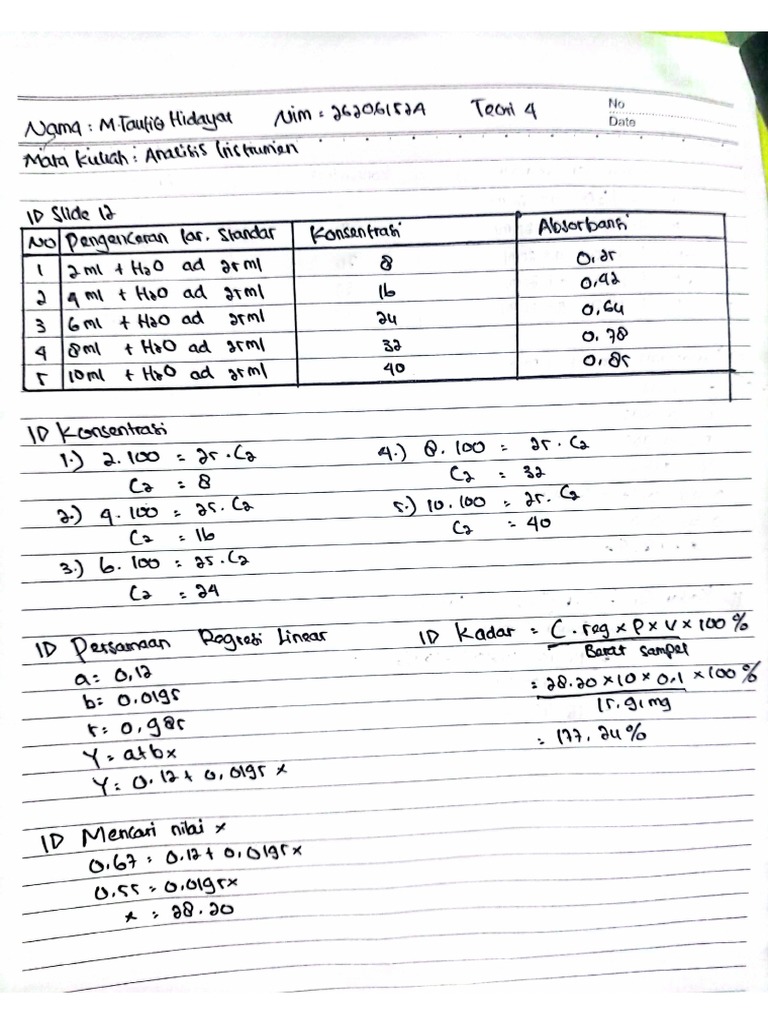 Nama : M.Taufiq Hidayat Nim = 26206152A Teori 4 No
Date
Mata Kuliah : Analisis Instrumen
ID Slide 12
No Pengenceran lar. Standar Konsentrasi Absorbansi
1 2 ml + H2O ad 25 ml 8 0,25
2 4 ml + H2O ad 25 ml 16 0,42
3 6 ml + H2O ad 25 ml 24 0,64
4 8 ml + H2O ad 25 ml 32 0.78
5 10 ml + H2O ad 25 ml 40 0,85
ID Konsentrasi
1.) 2.100 = 25.C2 4.) 8.100 = 25.C2
C2 = 8 C2 = 32
2.) 4.100 = 25.C2 5.) 10.100 = 25.C2
C2 = 16 C2 = 40
3.) 6.100 = 25.C2
C2 = 24
ID Persamaan Regresi Linear ID Kadar = C.reg x P x V x 100 %
a = 0,12 Berat sampel
b = 0.0195 = 28.20 x 10 x 0,1 x 100 %
r = 0,985 15,91 mg
Y = a+bx = 177,24 %
Y = 0.12 + 0,0195 x
ID Mencari nilai x
0.67 = 0.12 + 0,0195 x
0.55 = 0,0195x
x = 28.20